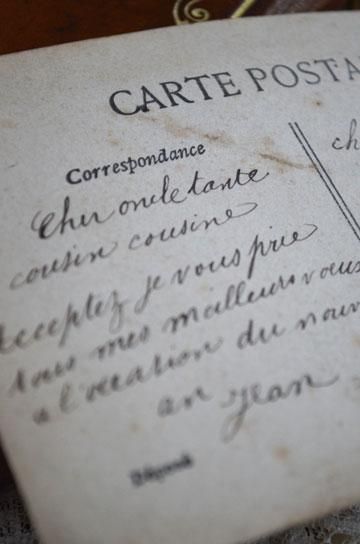 CARTE POSTA
Correspondance
ch
Cher oncle tante
cousin cousine
Acceptez je vous prie
tous mes meilleurs voeux
a l'occasion du nouv
an Jean